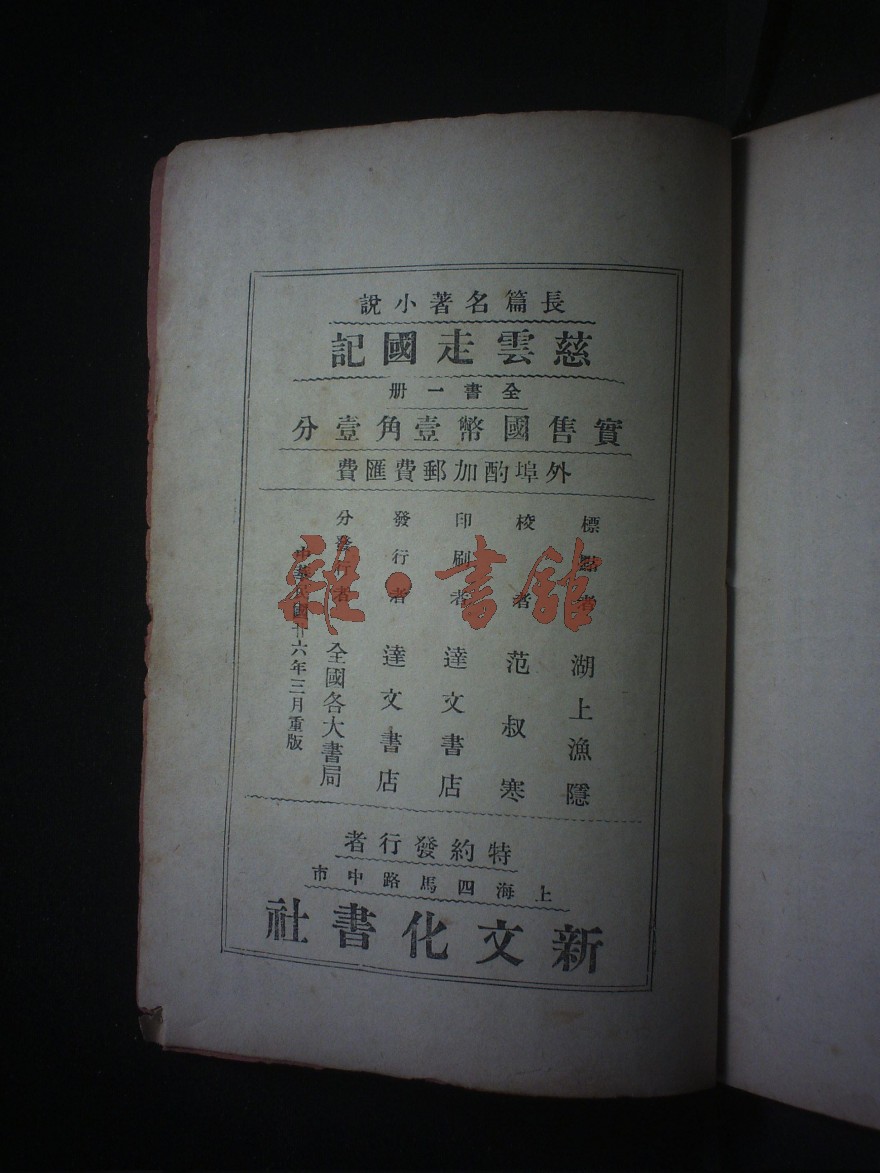 長篇名著小說
慈雲走國記
全書一册
實售國幣壹角壹分
外埠酌加郵費匯費
標點者 湖上漁隱
校者 范叔寒
印刷者 達文書店
發行者 達文書店
分發行者 全國各大書局
中華民國廿六年三月重版
特約發行者
上海四馬路中市
新文化書社
雜·書館